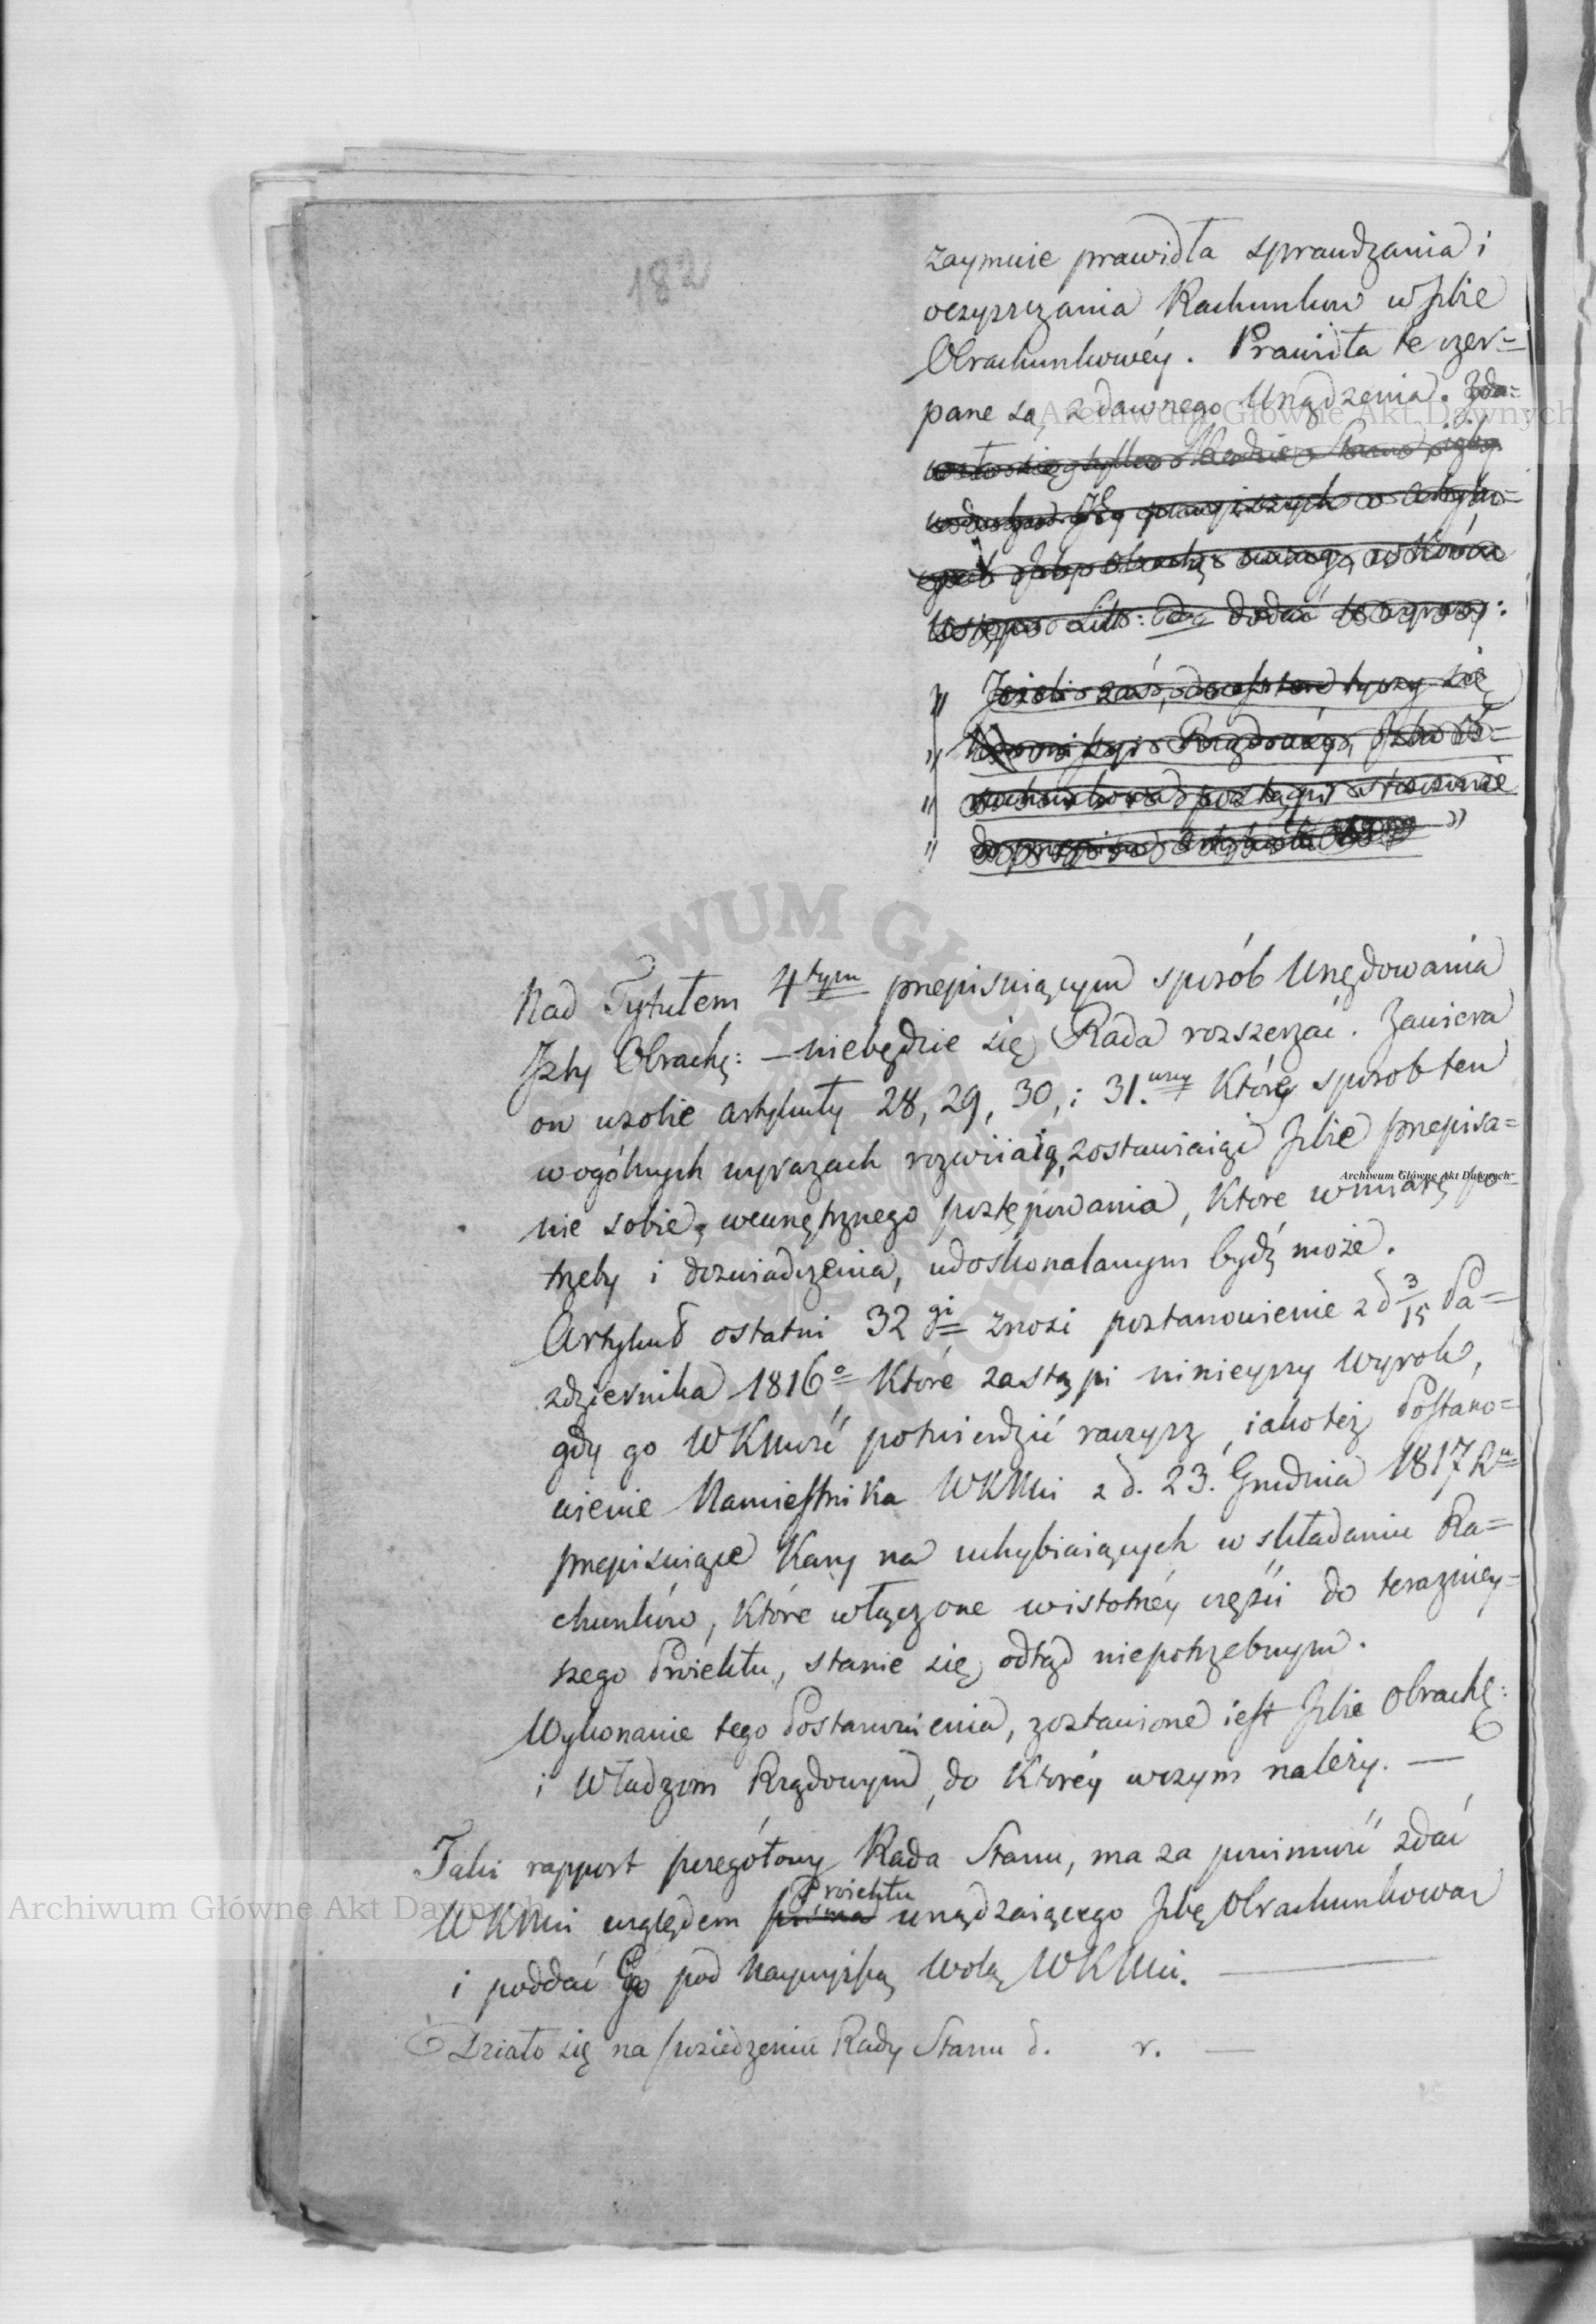 182
zaymuie prawidła sprawdzania i
oczyszczania Rachunkow w Jzbie
Obrachunkowéy. Prawidła te czer=
pane są z dawnego Urządzenia. Zda=
wało się tylko Radzie Stanu, iżby
Wstępu Litt: dodać te wyrazy:
„ Jeżeli zaś, tyczy się
„ Rządowéy, Jzba Ob=
„ rachunkowa postąpi stosownie
„ do przepisu Artykułu „
Nad Tytułem 4tym przepisuiącym sposób Urzędowania
Jzby Obrachę: — niebędzie się Rada rozszerzać. Zawiera
on wsobie artykuły 28, 29, 30, i 31.wszy Które sposob ten
wogólnych wyrazach rozwiiaią, zostawiaiąc Jzbie przepisa=
nie sobie wewnętrznego postępowania, Które wmiarę po=
trzeby i doświadczenia, udoskonalanym bydź może.
Artykuł ostatni 32gi znosi postanowienie z d 3/15 Pa=
zdziernika 1816o Które zastąpi ninieyszy Wyrok,
gdy go WKMość potwierdzić raczysz, iakoteż Postano=
wienie Namiestnika WKMci z d. 23. Grudnia 1817 Ru
przepisuiące Kary na uchybiaiących w składaniu Ra=
chunków, Które włączone wistotnéy części do teraźniey=
szego Proiektu, stanie się odtąd niepotrzebnym.
Wykonanie tego Postanowienia, zostawione iest Jzbie Obrachę:
i Władzom Rządowym, do Któréy wczym należy. —
Taki rapport szczegółowy Rada Stanu, ma za powinność zdać
WKMci względem Proiektu urządzaiącego Jzbę Obrachunkową
i poddać Go pod Naywyższą Wolą WKMci. —
Działo się na posiedzeniu Rady Stanu d. r. —
Archiwum Główne Akt Dawnych
Archiwum Główne Akt Dawnych
Archiwum Główne Akt Dawnych